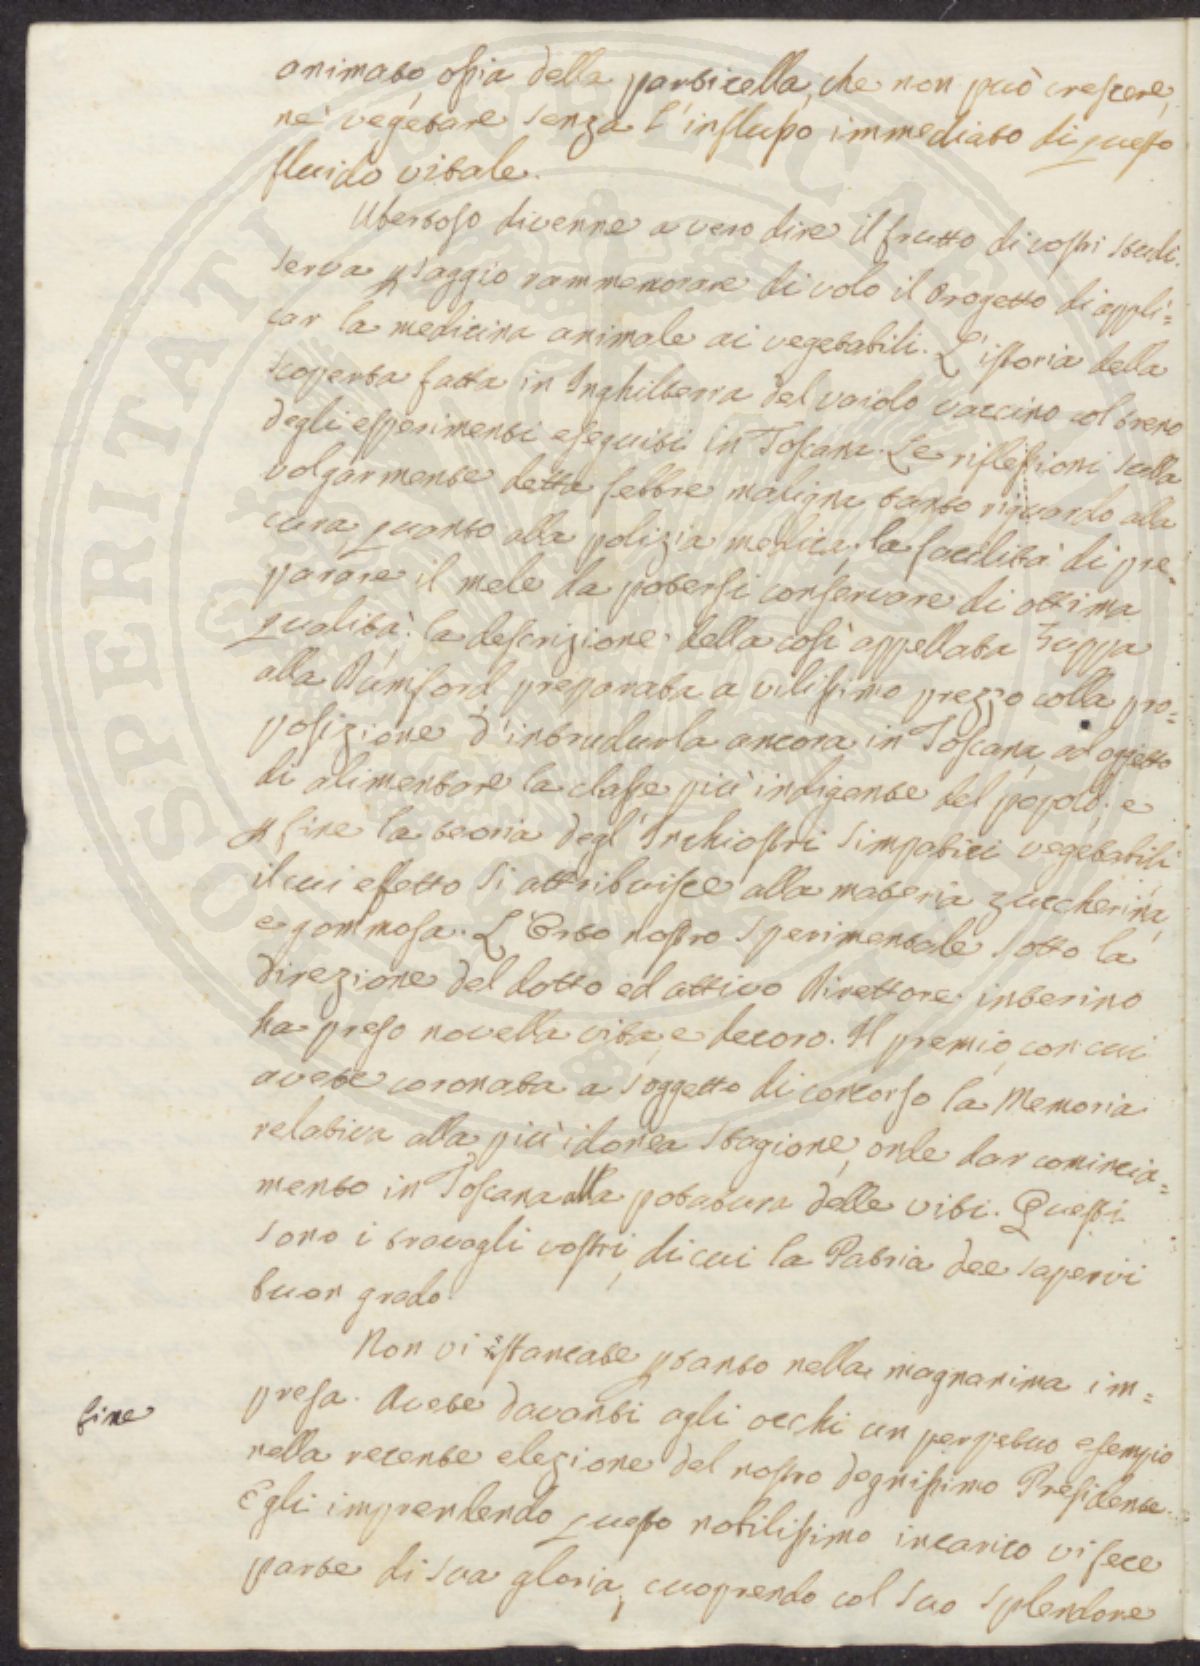 animato, ossia della particella, che non può crescere,
nè vegetare senza l'influsso immediato di questo
fluido vitale.
Ubertoso divenne a vero dire il frutto di vostri studi.
Serva p saggio rammemorare di volo il Progetto di appli=
car la medicina animale ai vegetabili. L'istoria della
scoperta fatta in Inghilterra del vaiolo vaccino col treno
degli esperimenti eseguiti in Toscana. Le riflessioni sulla
volgarmente detta febbre maligna tanto riguardo alla
cura quanto alla polizia medica; la facilità di pre=
parare il mele da potersi conservare di ottima
qualità: la descrizione della così appellata Zuppa
alla Rumford preparata a vilissimo prezzo colla pro=
posizione d'introdurla ancora in Toscana ad oggetto
di alimentare la classe più indigente del popolo; e
p fine la teoria degl'Inchiostri simpatici vegetabili
il cui effetto si attribuisce alla materia zuccherina,
e gommosa. L'Orto nostro sperimentale sotto la
direzione del dotto ed attivo Direttore interino
ha preso novella vita, e decoro. Il premio, con cui
avete coronata a soggetto di concorso la Memoria
relativa alla più idonea stagione, onde dar comincia=
mento in Toscana alla potatura delle viti. Questi
sono i travagli vostri, di cui la Patria dee sapervi
buon grado.
Non vi stancate ptanto nella magnanima im=
presa. Avete davanti agli occhi un perpetuo esempio
fine
nella recente elezione del nostro degnissimo Presidente.
Egli imprendendo questo nobilissimo incarico vi fece
parte di sua gloria, cuoprendo col suo splendore